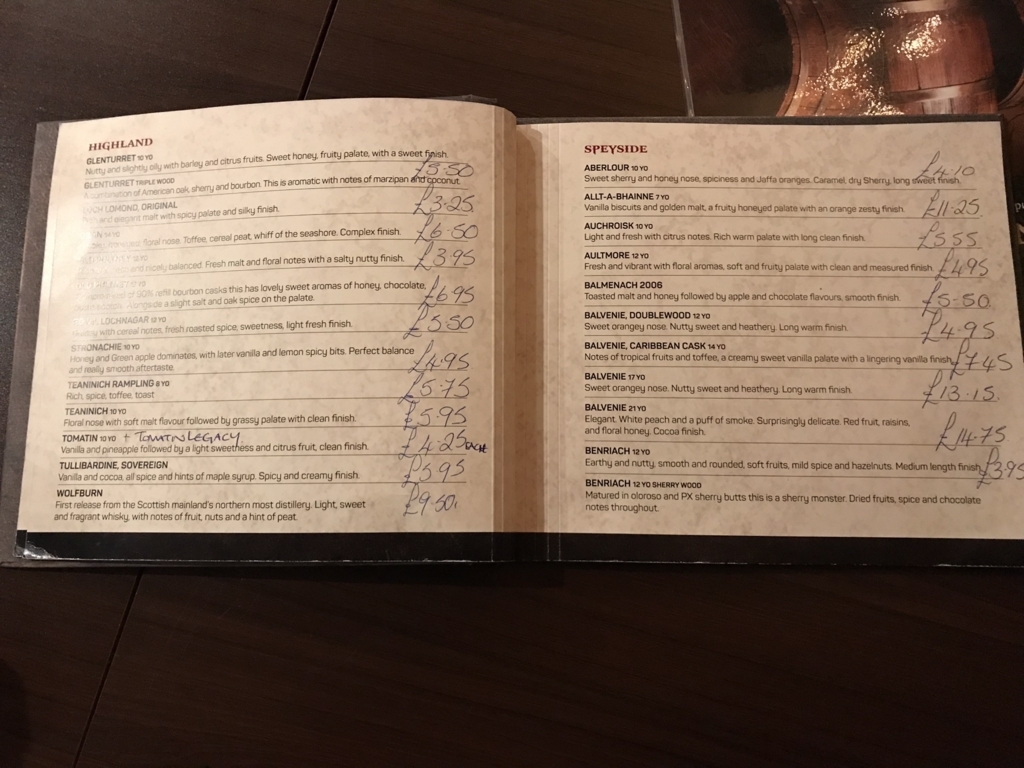 HIGHLAND
GLENTURRET 10 YO
Nutty and slightly oily with barley and citrus fruits. Sweet honey, fruity palate, with a sweet finish.
£5.50
GLENTURRET TRIPLE WOOD
of American oak, sherry and bourbon. This is aromatic with notes of marzipan and coconut.
£3.25
LOMOND, ORIGINAL
and elegant malt with spicy palate and silky finish.
£6.50
floral nose. Toffee, cereal peat, whiff of the seashore. Complex finish.
£3.95
and nicely balanced. Fresh malt and floral notes with a salty nutty finish.
of 90% refill bourbon casks this has lovely sweet aromas of honey, chocolate,
Alongside a slight salt and oak spice on the palate.
£6.95
LOCHNAGAR 12 YO
with cereal notes, fresh roasted spice, sweetness, light fresh finish.
£5.50
STRONACHIE 10 YO
Honey and Green apple dominates, with later vanilla and lemon spicy bits. Perfect balance
and really smooth aftertaste.
£4.95
TEANINICH RAMPLING 8 YO
Rich, spice, toffee, toast
£5.75
TEANINICH 10 YO
Floral nose with soft malt flavour followed by grassy palate with clean finish.
£5.95
TOMATIN 10 YO + TOMATIN LEGACY
Vanilla and pineapple followed by a light sweetness and citrus fruit, clean finish.
£4.25 EACH
TULLIBARDINE, SOVEREIGN
Vanilla and cocoa, all spice and hints of maple syrup. Spicy and creamy finish.
£5.95
WOLFBURN
First release from the Scottish mainland's northern most distillery. Light, sweet
and fragrant whisky, with notes of fruit, nuts and a hint of peat.
£9.50
SPEYSIDE
ABERLOUR 10 YO
Sweet sherry and honey nose, spiciness and Jaffa oranges. Caramel, dry Sherry, long sweet finish.
£4.10
ALLT-A-BHAINNE 7 YO
Vanilla biscuits and golden malt, a fruity honeyed palate with an orange zesty finish.
£11.25
AUCHROISK 10 YO
Light and fresh with citrus notes. Rich warm palate with long clean finish.
£5.55
AULTMORE 12 YO
Fresh and vibrant with floral aromas, soft and fruity palate with clean and measured finish.
£4.95
BALMENACH 2006
Toasted malt and honey followed by apple and chocolate flavours, smooth finish.
£5.50
BALVENIE, DOUBLEWOOD 12 YO
Sweet orangey nose. Nutty sweet and heathery. Long warm finish.
£4.95
BALVENIE, CARIBBEAN CASK 14 YO
Notes of tropical fruits and toffee, a creamy sweet vanilla palate with a lingering vanilla finish.
£7.45
BALVENIE 17 YO
Sweet orangey nose. Nutty sweet and heathery. Long warm finish.
£13.15
BALVENIE 21 YO
Elegant. White peach and a puff of smoke. Surprisingly delicate. Red fruit, raisins,
and floral honey. Cocoa finish.
£14.75
BENRIACH 12 YO
Earthy and nutty, smooth and rounded, soft fruits, mild spice and hazelnuts. Medium length finish.
£3.95
BENRIACH 12 YO SHERRY WOOD
Matured in oloroso and PX sherry butts this is a sherry monster. Dried fruits, spice and chocolate
notes throughout.